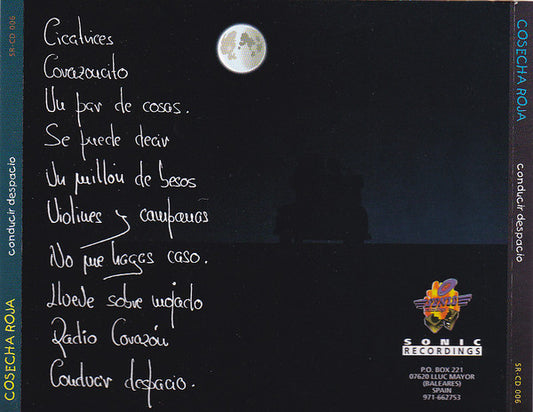 SR-CD 006
conducir despacio
COSECHA ROJA
Cicatrices
Corazoncito
Un par de cosas.
Se puede decir
Un millón de besos
Violines y campanas
No me hagas caso.
Llueve sobre mojado
Radio Corazón
Conducir despacio.
SONIC
SONIC
RECORDINGS
P.O. BOX 221
07620 LLUC MAYOR
(BALEARES)
SPAIN
971-662753
COSECHA ROJA
conducir despacio
SR-CD 006